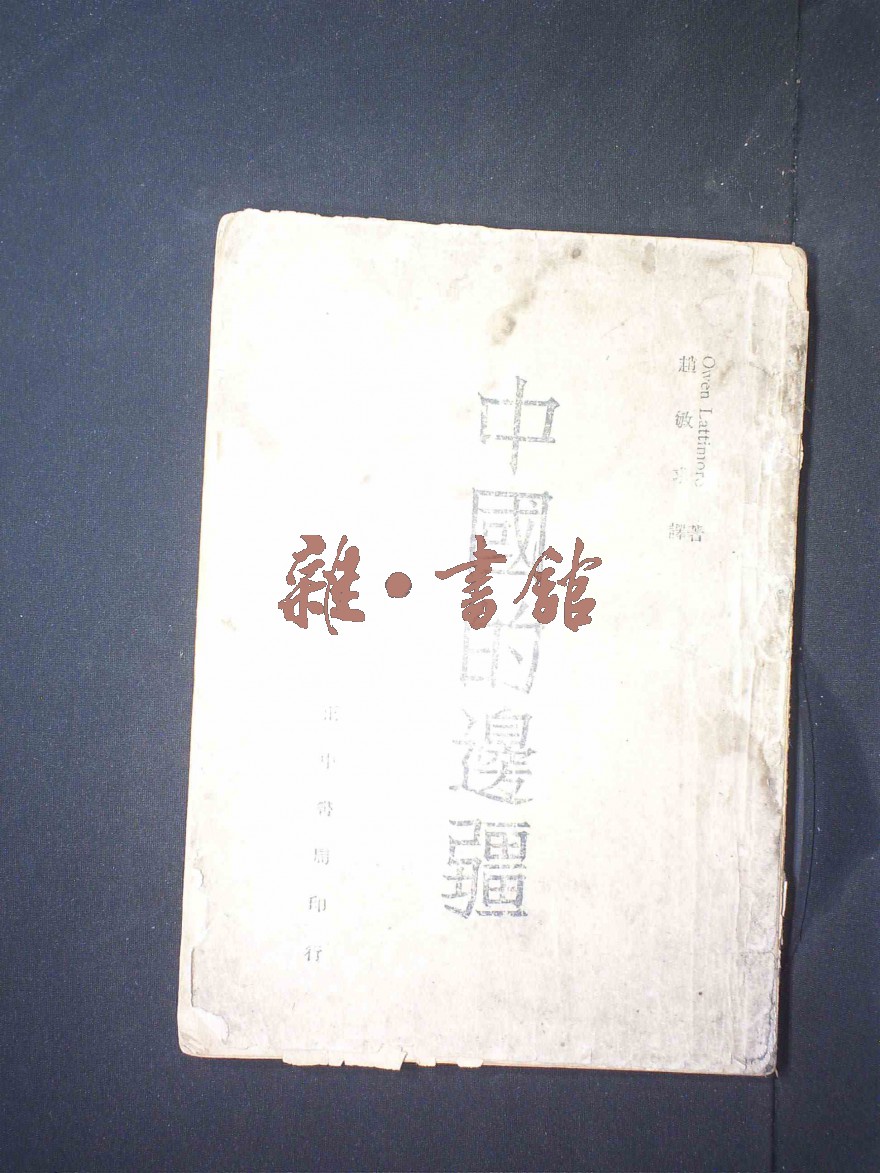 Owen Lattimore 著
趙敏求 譯
中國的邊疆
正中書局印行
雜·書館